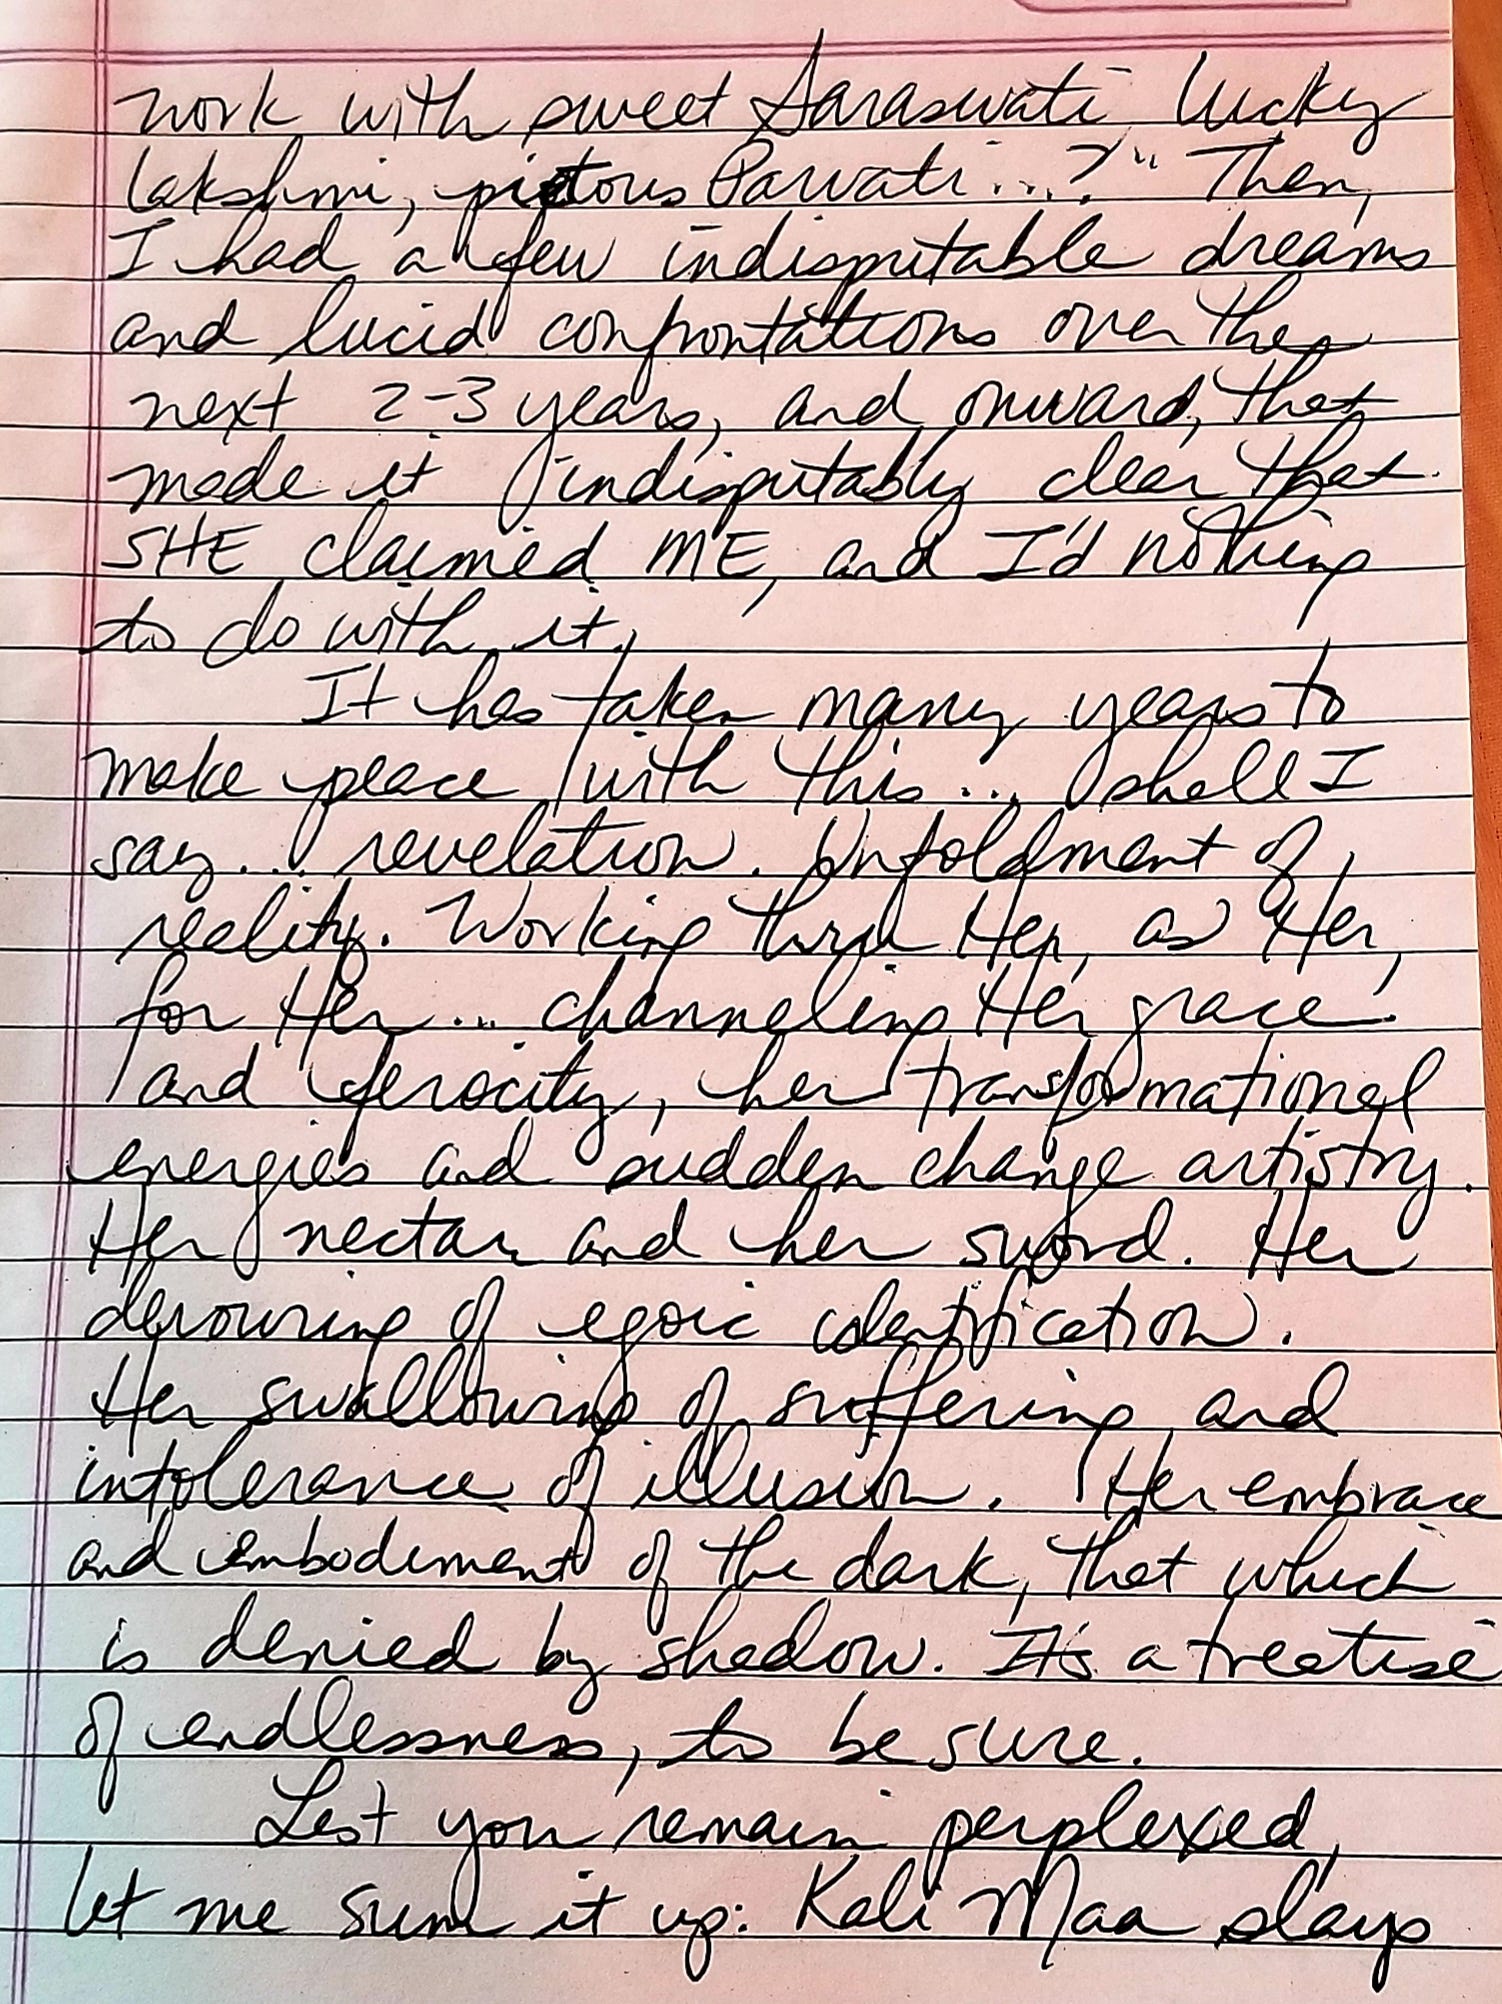 work with sweet Saraswati lucky
Lakshmi, Parvati...?" Then,
I had a few indisputable dreams
and lucid confrontations over the
next 2-3 years, and onward, that
made it indisputably clear that
SHE claimed ME, and I'd nothing
to do with it.
It has taken many years to
make peace with this... shall I
say... revelation. Unfoldment of
reality. Working thru Her, as Her,
for Her... channeling Her grace
and ferocity, her transformational
energies and sudden change artistry.
Her nectar and her sword. Her
devouring of egoic identification.
Her swallowing of suffering and
intolerance of illusion. Her embrace
and embodiment of the dark, that which
is denied by shadow. It's a treatise
of endlessness, to be sure.
Lest you remain perplexed,
let me sum it up: Kali Maa slays